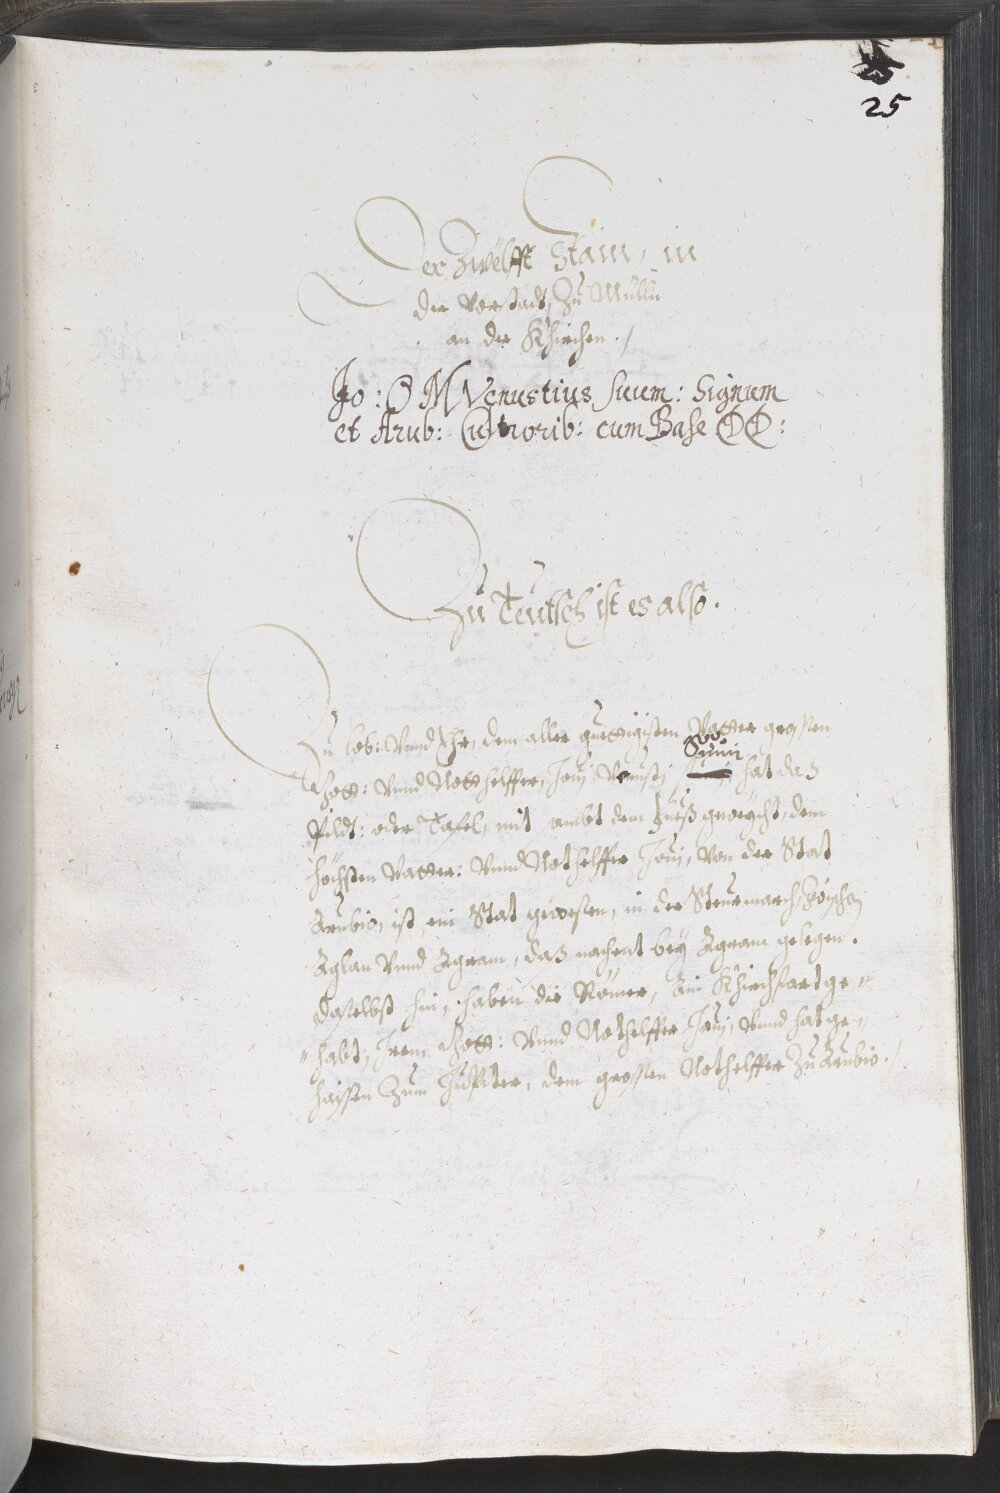 25
Der Zwelfft Stain, in
der Vorstadt, zu Mülln
an der Khirchen ./
Jo: O M Venustius Suum: Signum
et Arub: Cultorib: cum Base DD:
Zu Teutsch ist es also.
Zu lob: Vnnd Ehr, dem aller guettigisten Vatter grossen
Gott: Vnnd Nothhelffer, Joui Venusti Suum hat das
Pildt: oder Tafel, mit sambt dem Fueß geweycht, dem
höchsten Vatter: Vnnd Nothelffer Joui, Von der Stat
Arubio, ist ein Stat gewesen, in der Steurmarch, Zwischen
Aglan Vnnd Agram, daß nachent bey Agram gelegen.
Daselbst hin, haben die Römer, Ein Khirchfart ge=
=habt, Irem Gott: Vnnd Nothelffer Joui, Vnnd hat ge=
haissen Zum Jupiter, dem grossen Nothelffer Zu Arubio./